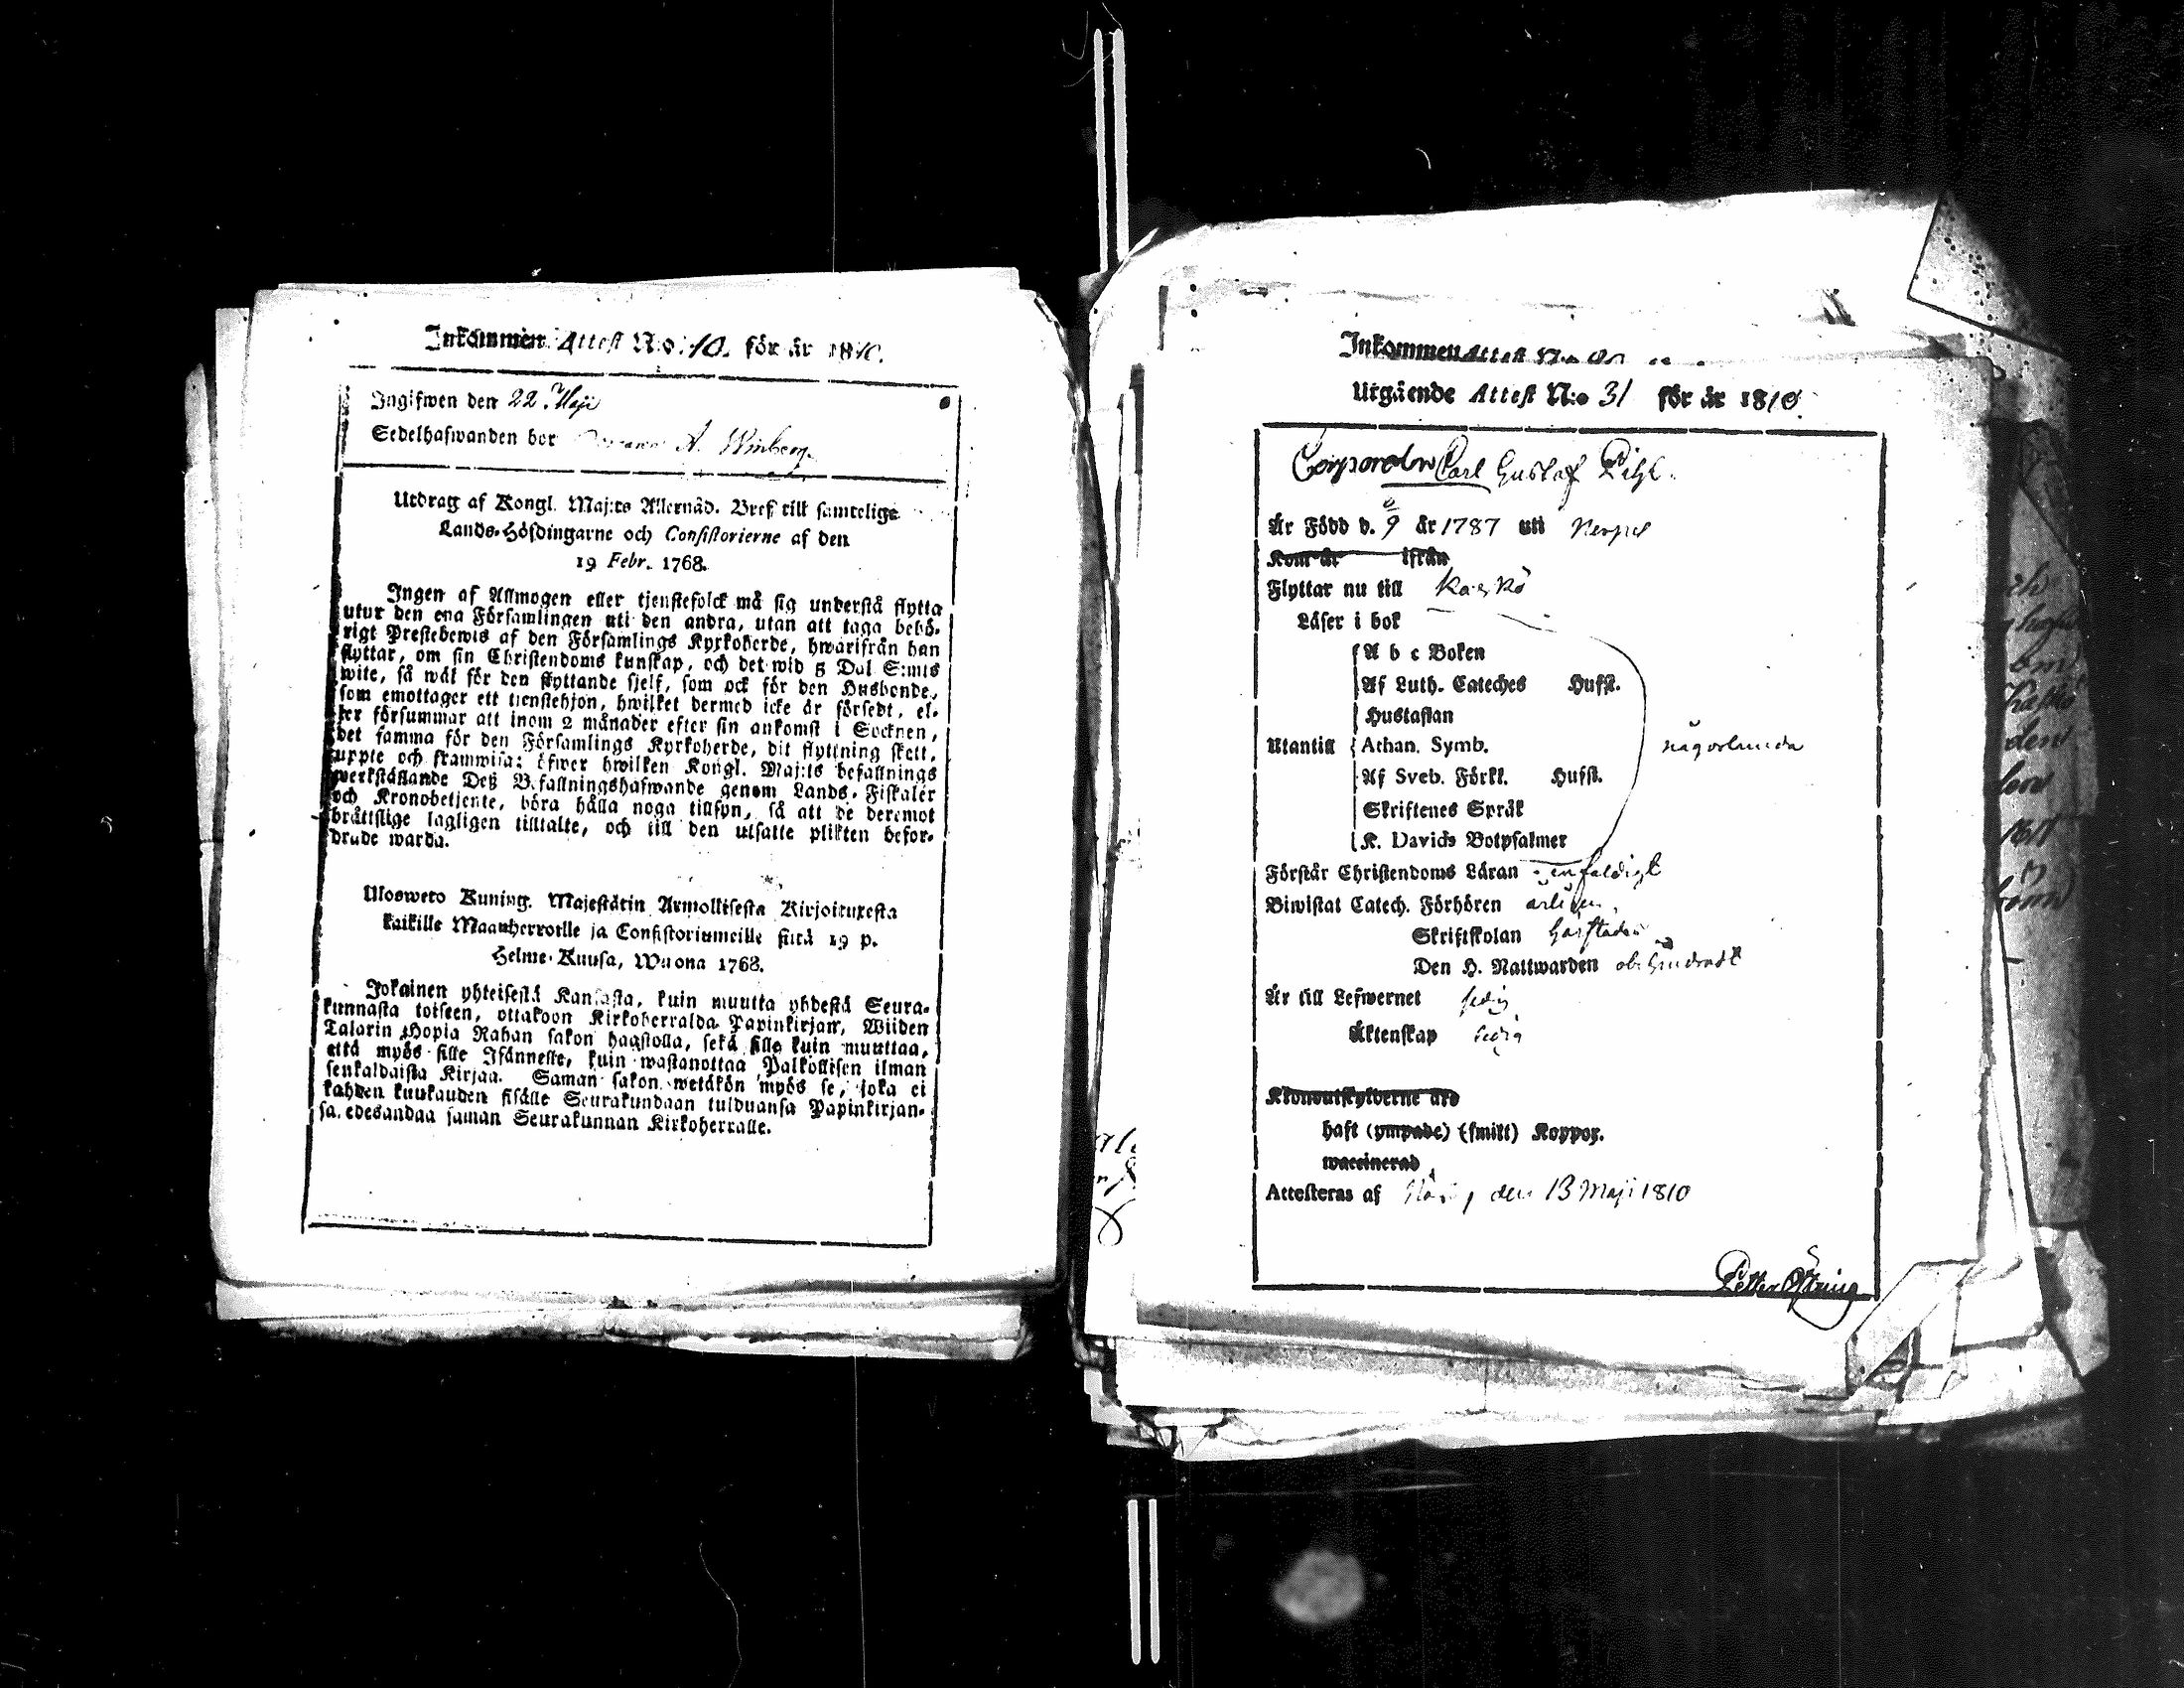 Inkommen Attest N:o 10. för år 1810.
Ingifwen den 22 Maji
Sedelhafwanden bor A. Winberg
Utdrag af Kongl. Maj:ts Allernåd. Bref till samtelige
Lands-Höfdingarne och Consistorierne af den
19 Febr. 1768.
Ingen af Allmogen eller tjenstefolck må sig understå flytta
utur den ena Församlingen uti den andra, utan att taga behö-
rigt Prestebewis af den Församlings Kyrkoherde, hwarifrån han
flyttar, om sin Christendoms kunskap, och det wid 5 Dal S:mts
wite, så wäl för den flyttande sjelf, som ock för den Husbonde,
som emottager ett tienstehjon, hwilket dermed icke är försedt, el-
ler försummar att inom 2 månader efter sin ankomst i Socknen,
det samma för den Församlings Kyrkoherde, dit flyttning skett,
uppte och framwisa: öfwer hwilken Kongl. Maj:ts befallnings
werkställande Deß Befallningshafwande genom Lands-Fiskaler
och Kronobetjente, böra hålla noga tillsyn, så att de deremot
bråttslige lagligen tilltalte, och till den utsatte plikten befor-
drade warda.
Ulosweto Kuning. Majestätin Armollisesta Kirjoituxesta
kaikille Maanherroille ja Consistoriumeille siitä 19 p.
Helme-Kuusa, Wuona 1768.
Jokainen yhteisestä Kansasta, kuin muutta yhdestä Seura-
kunnasta toiseen, ottakoon Kirkoherralda Papinkirjan, Wiiden
Talarin Hopia Rahan sakon haastolla, sekä sille kuin muuttaa,
että myös sille Isännelle, kuin wastanottaa Palkollisen ilman
senkaldaista Kirjaa. Saman sakon wetäkön myös se, joka ei
kahden kuukauden sisälle Seurakundaan tulduansa Papinkirjan-
sa edesandaa saman Seurakunnan Kirkoherralle.
Inkommen Attest N:o
Utgående Attest N:o 31 för år 1810.
Corporalen Carl Gustaf Pihl.
År Född d. 9 år 1787 uti Nerpes
Kom år ifrån
Flyttar nu till Kaskö
Läser i bok
A b c Boken
Af Luth. Cateches Husst.
Hustaflan
Utantill Athan. Symb. någorlunda
Af Sveb. Förkl. Husst.
Skriftenes Språk
K. Davids Botpsalmer
Förstår Christendoms Läran enfaldigt
Biwistat Catech. Förhören årligen.
Skriftskolan
Den H. Nattwarden obehindradt
År till Lefwernet sedig
Äktenskap ledig
Kronoutskylderne äro
haft (ympade) (smitt) Koppor.
waccinerad
Attesteras af den 13 Maji 1810
Petter